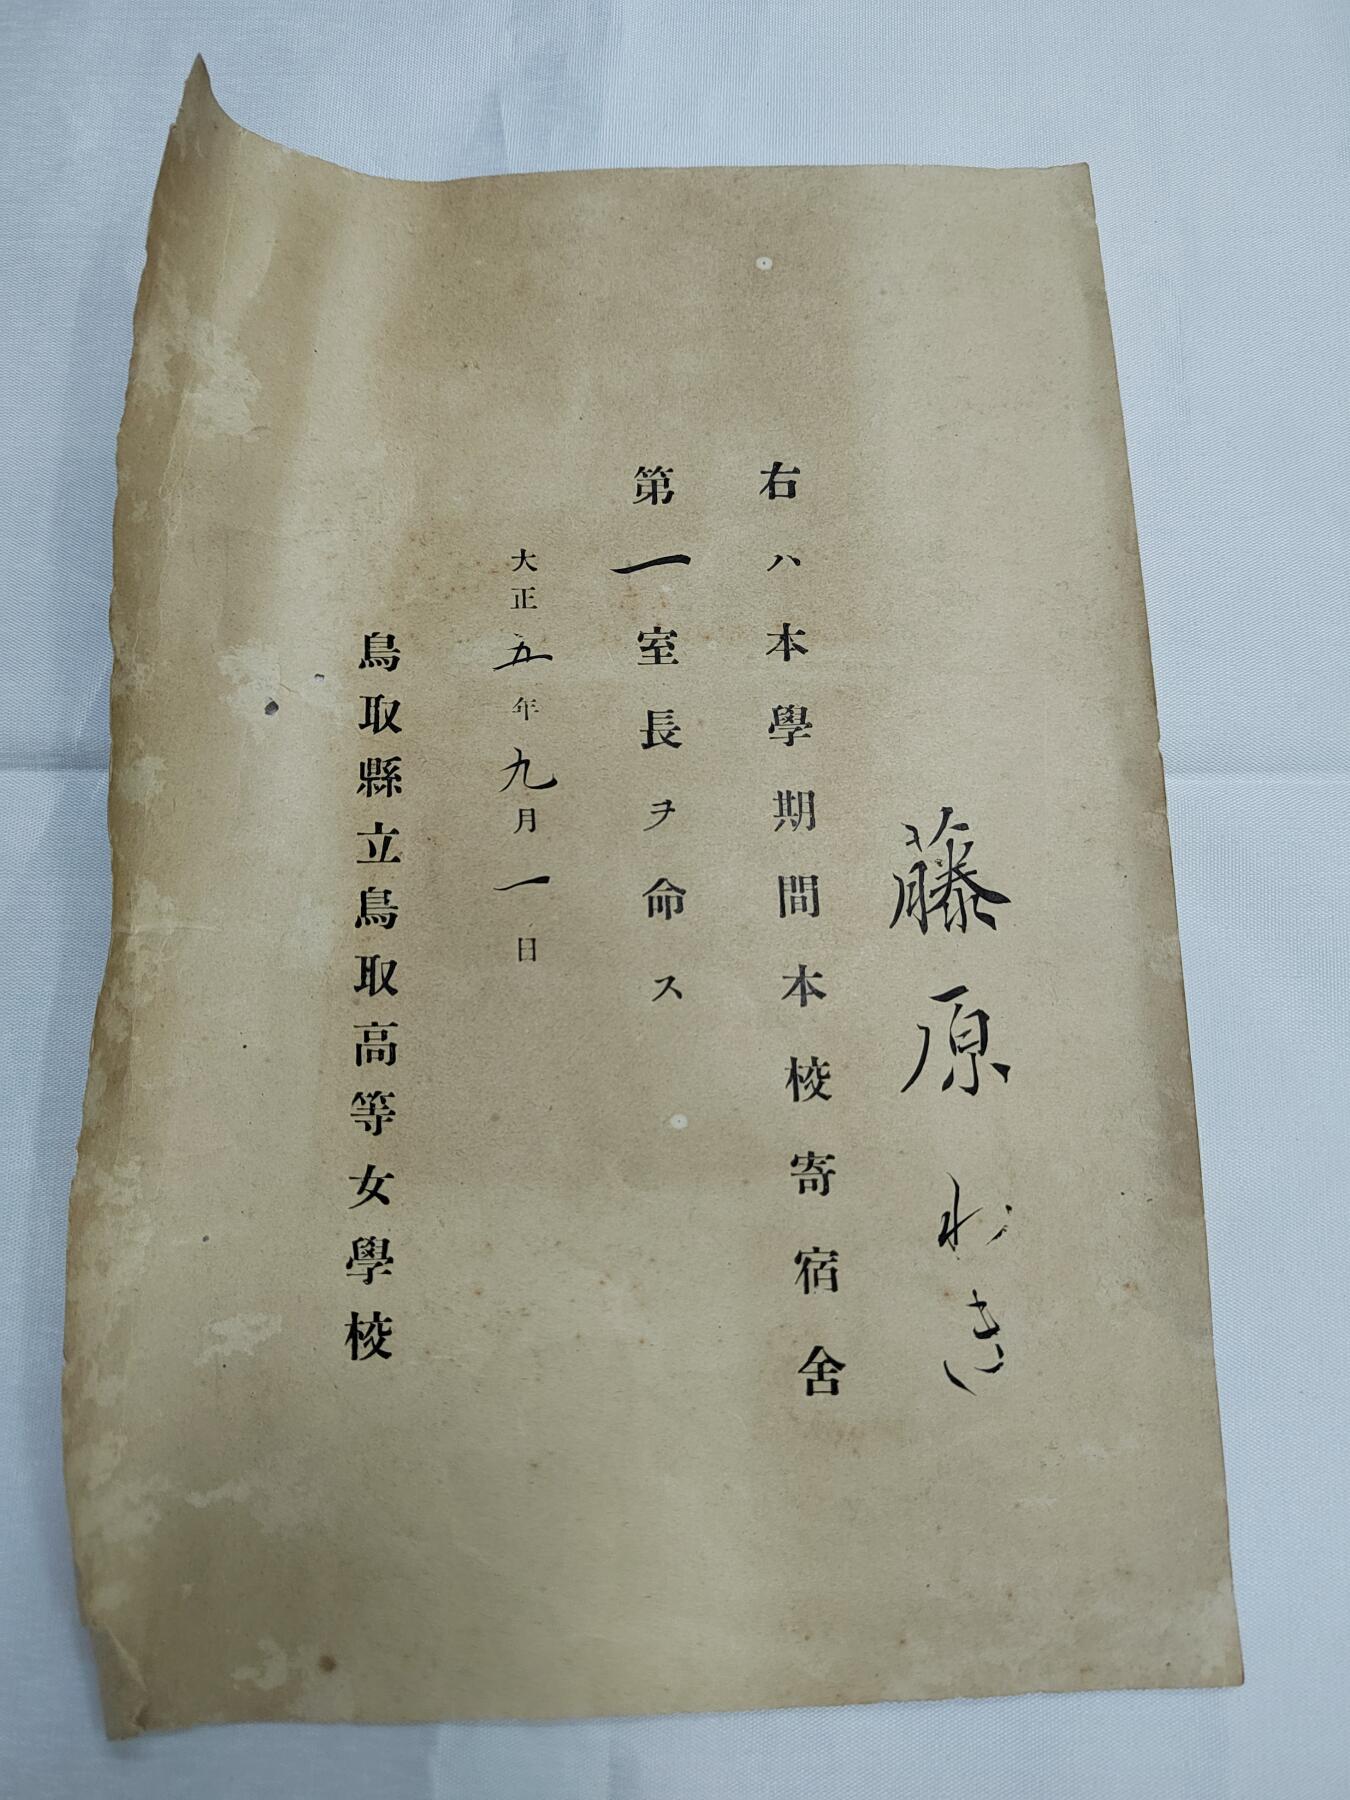 藤原れき
右ハ本學期間本校寄宿舍
第一室長ヲ命ス
大正五年九月一日
鳥取縣立鳥取高等女學校